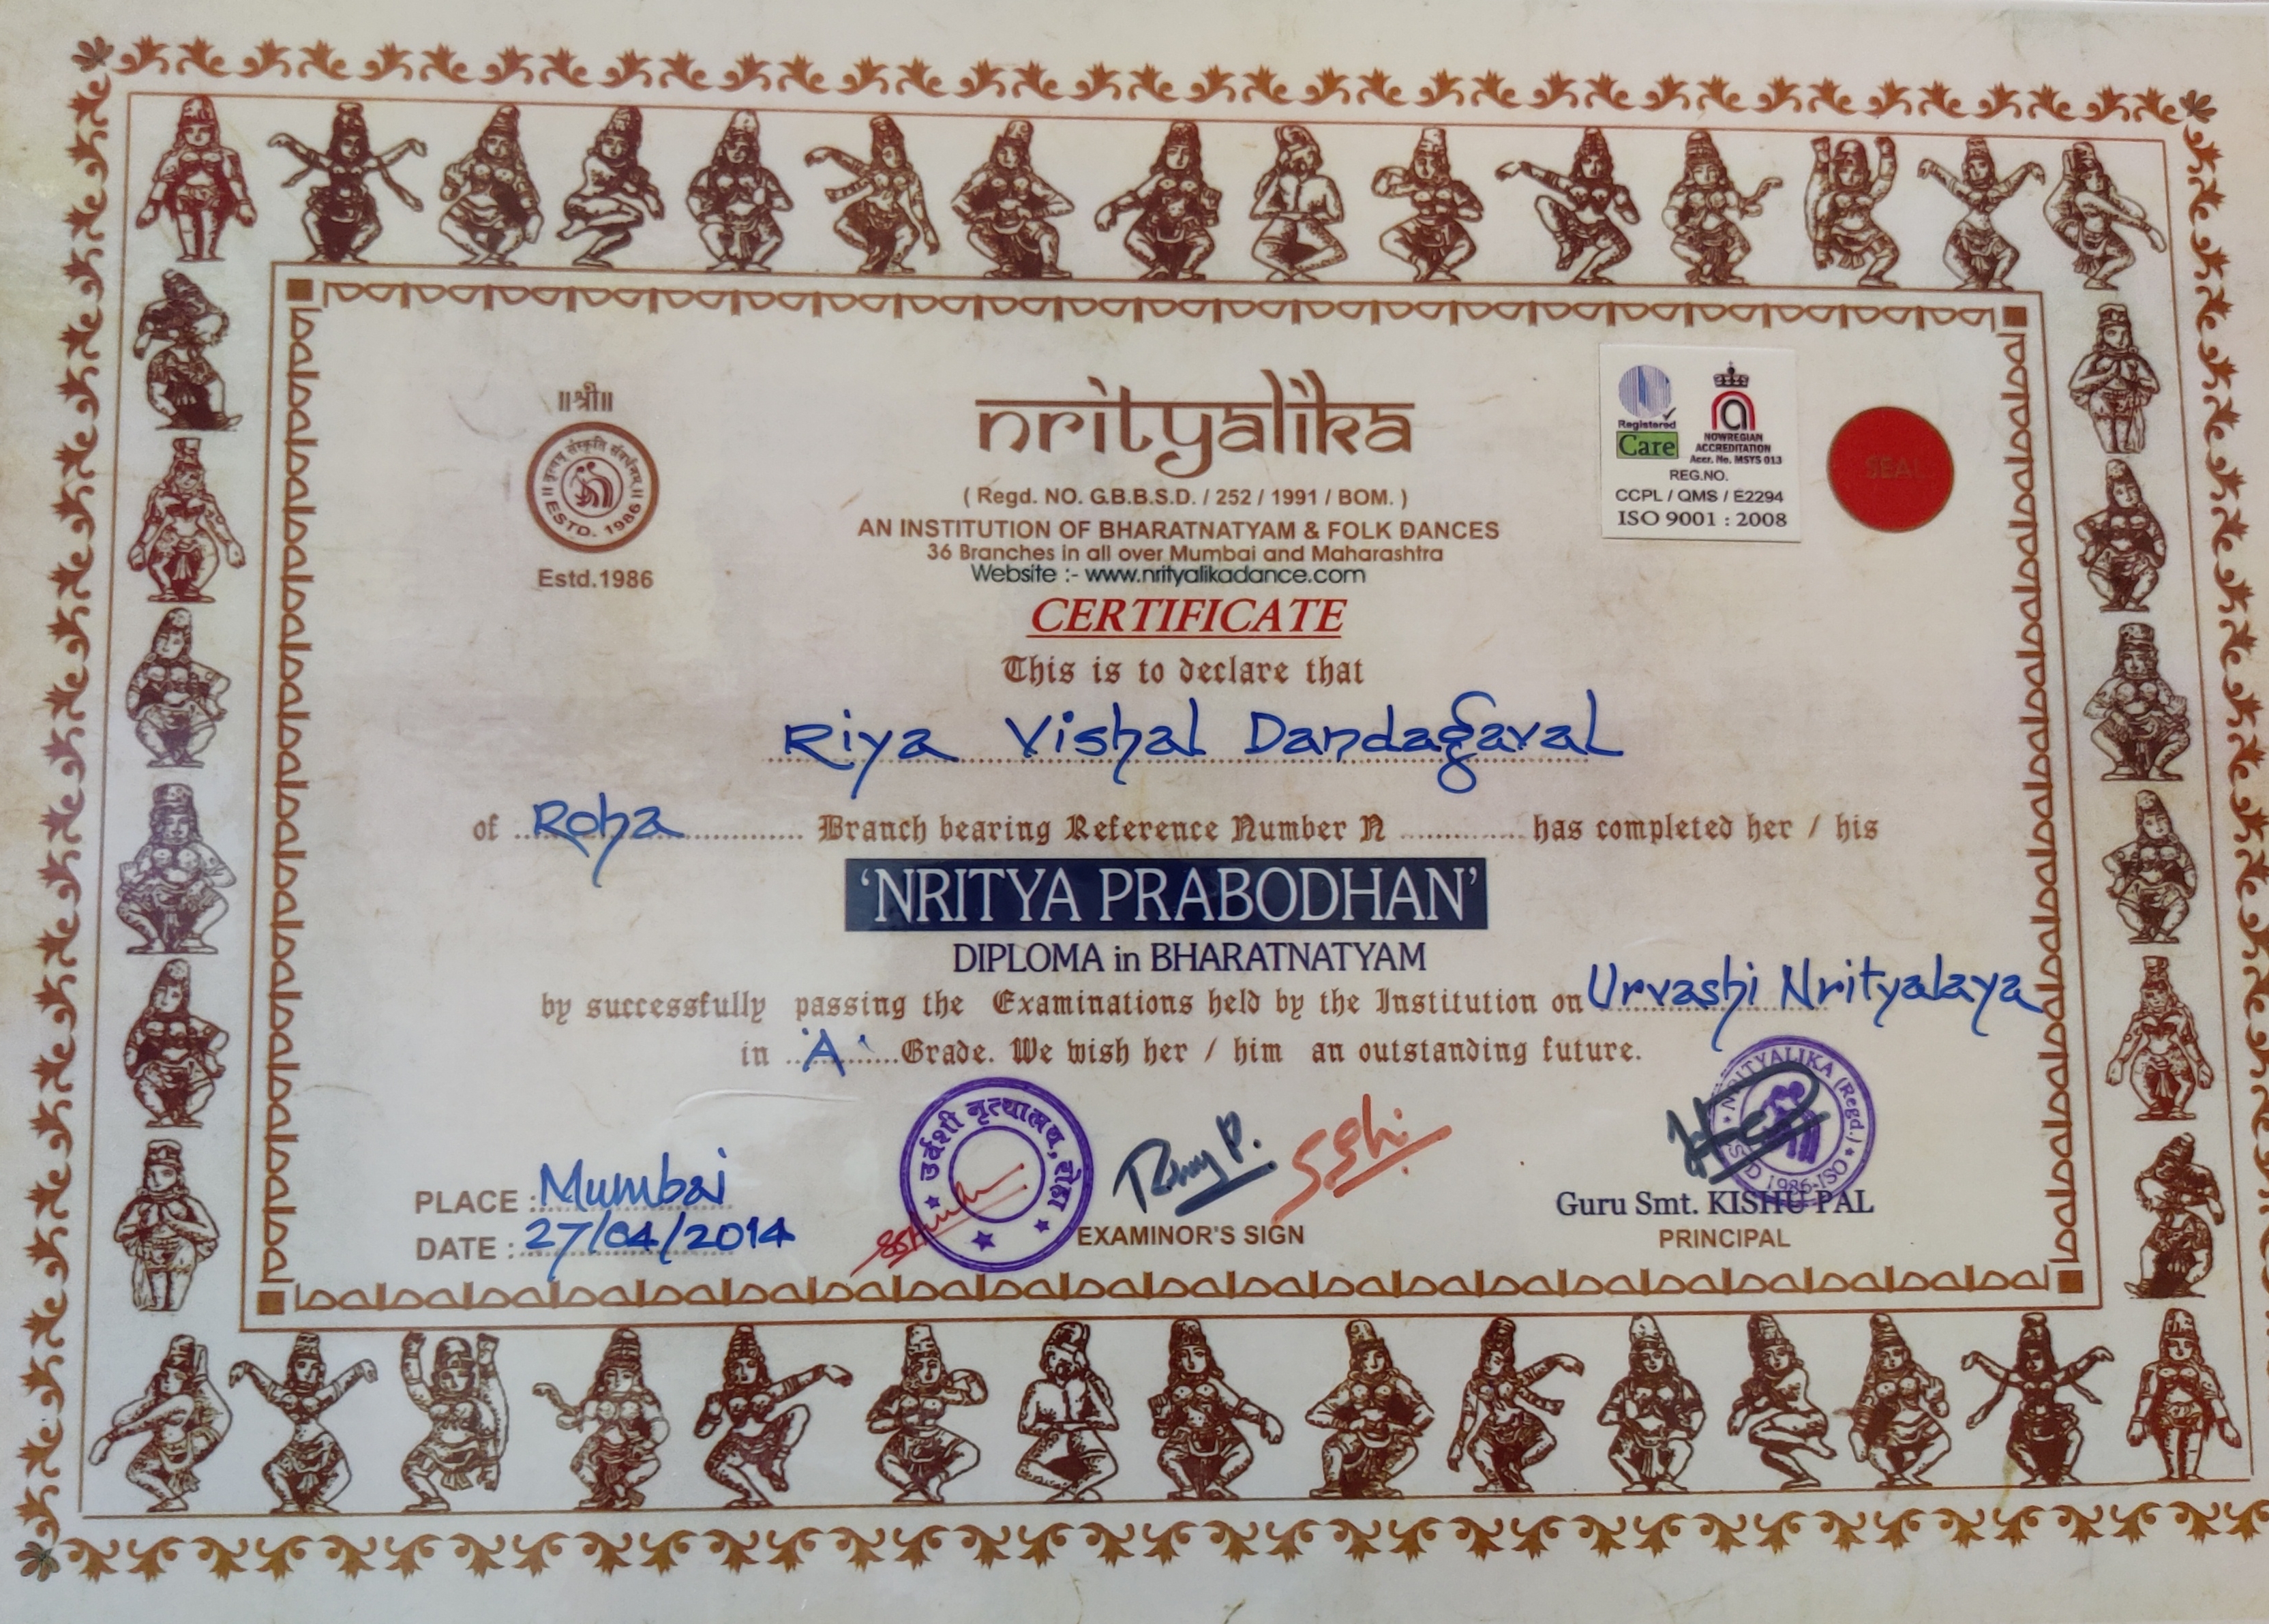 ॥श्री॥
॥ नृत्यम् संस्कृति संवर्धनम् ॥
ESTD. 1986
Estd.1986
nrityalika
( Regd. NO. G.B.B.S.D. / 252 / 1991 / BOM. )
AN INSTITUTION OF BHARATNATYAM & FOLK DANCES
36 Branches in all over Mumbai and Maharashtra
Website :- www.nrityalikadance.com
Registered
Care
NOWREGIAN
ACCREDITATION
Accr. No. MSYS 013
REG.NO.
CCPL / QMS / E2294
ISO 9001 : 2008
SEAL
CERTIFICATE
This is to declare that
Riya Vishal Dandagaval
of Roha Branch bearing Reference Number N ............ has completed her / his
'NRITYA PRABODHAN'
DIPLOMA in BHARATNATYAM
by successfully passing the Examinations held by the Institution on Urvashi Nrityalaya
in 'A' Grade. We wish her / him an outstanding future.
PLACE : Mumbai
DATE : 27/04/2014
उर्वशी नृत्यालय, रोहा
EXAMINOR'S SIGN
NRITYALIKA (Regd.)
1986-ISO
Guru Smt. KISHU PAL
PRINCIPAL